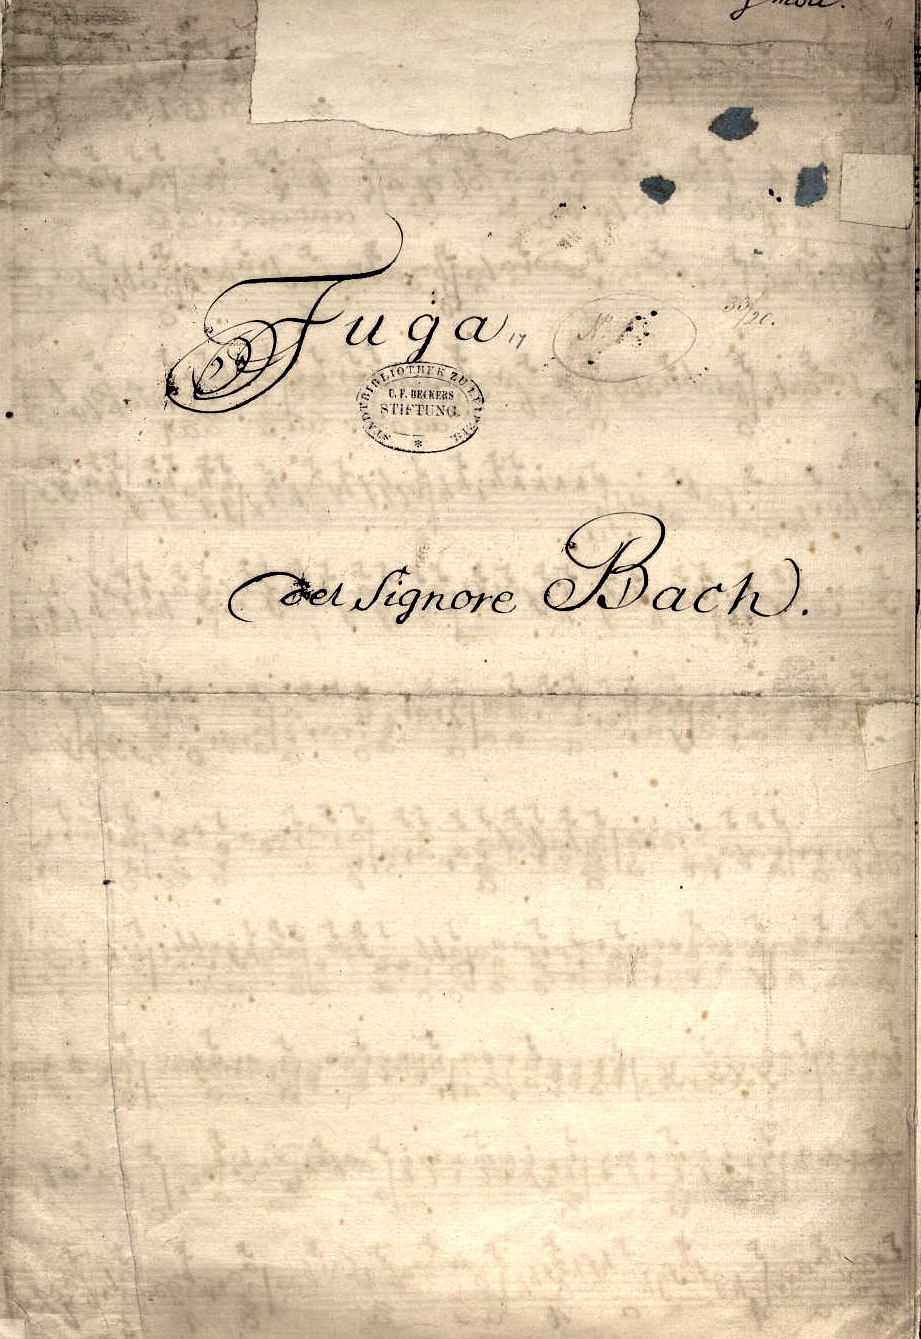 g moll.
Fuga
STADTBIBLIOTHEK ZU LEIPZIG.
C. F. BECKERS
STIFTUNG.
*
del Signore Bach.